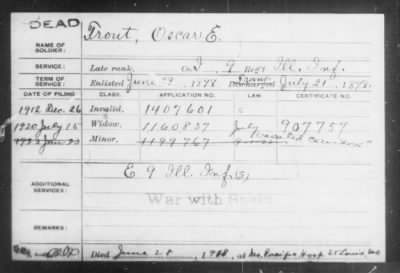 DEAD
Trout, Oscar E.
NAME OF SOLDIER:
SERVICE: Late rank, Co. I, 9 Reg't Ill. Inf.
TERM OF SERVICE: Enlisted June 29, 1898. Trans. Discharged July 21, 1898.
DATE OF FILING CLASS. APPLICATION NO. LAW. CERTIFICATE NO.
1912 Dec. 26 Invalid, 1407601
1920 July 15 Widow, 1160837 July 907757
Minor, 1199767
E 9 Ill. Inf.
ADDITIONAL SERVICES:
War with Spain.
REMARKS:
Died June 28, at Mo. Pacific Hosp St Louis, Mo